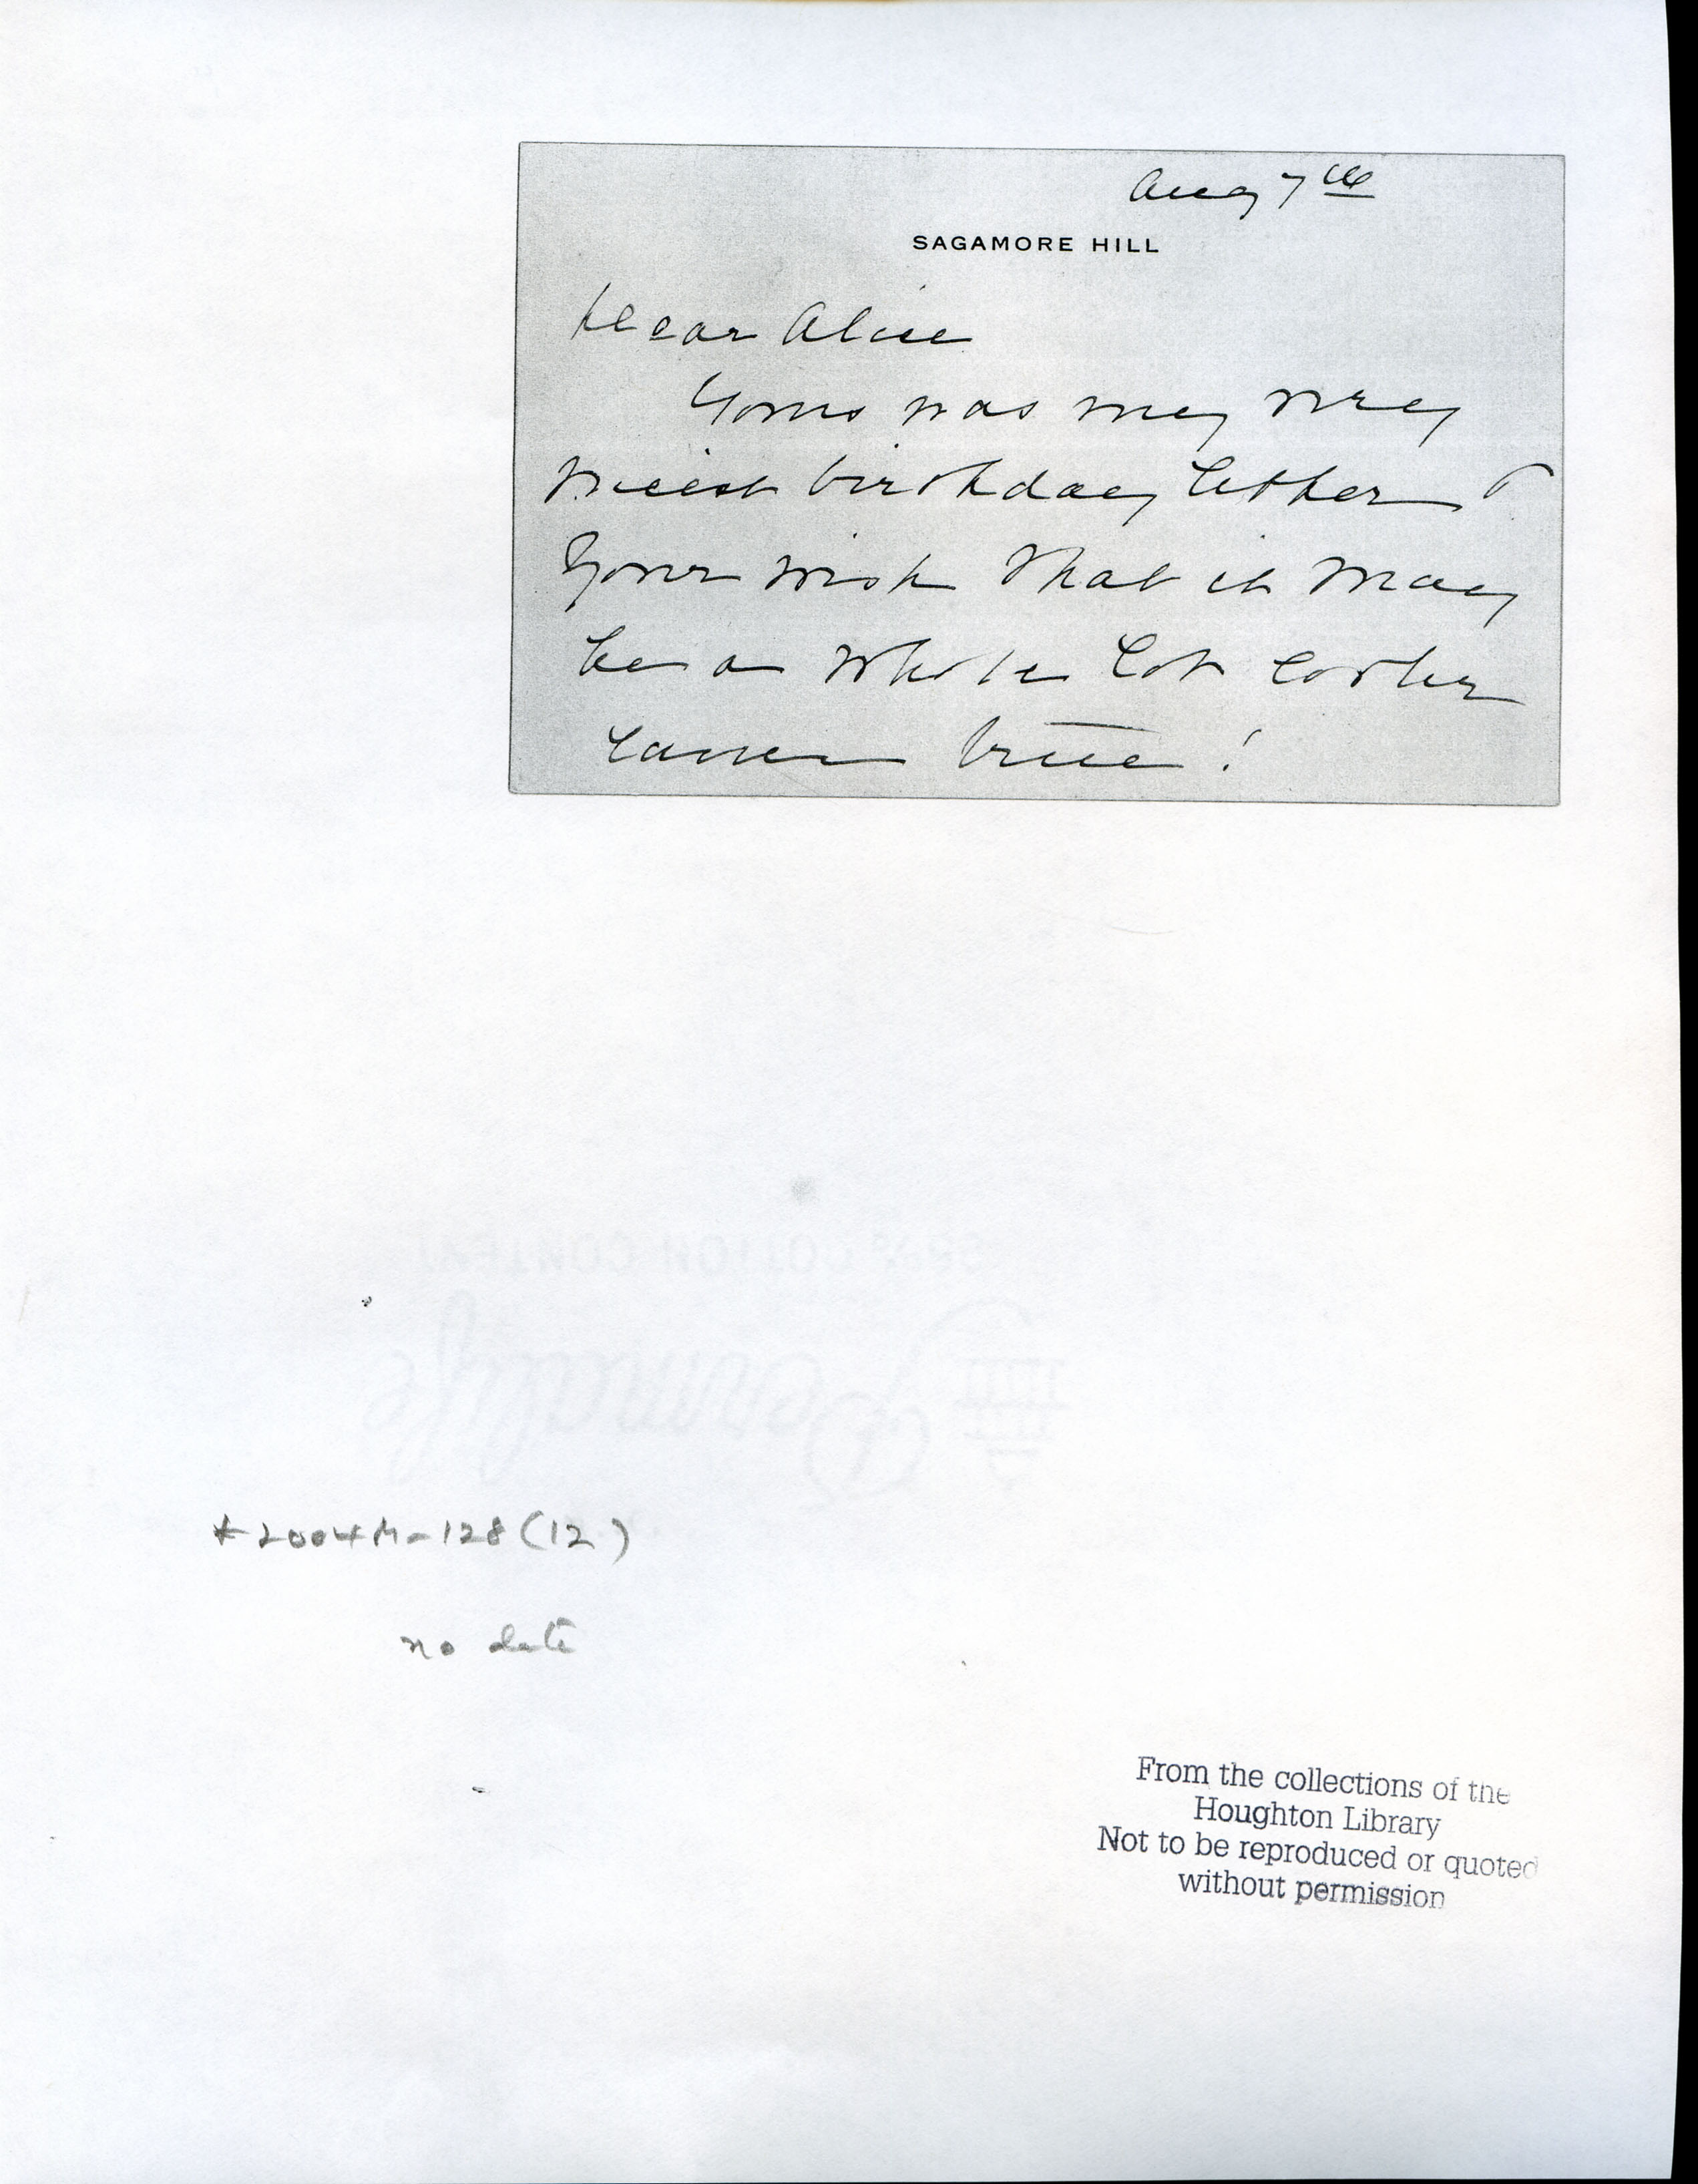 Aug 7th
SAGAMORE HILL
Dear Alice
Yours was my very
nicest birthday letter &
Your wish that it may
be a whole lot cooler
came true!
COTTON CONTENT
Permalife
*2004M-128(12)
no date
From the collections of the
Houghton Library
Not to be reproduced or quoted
without permission